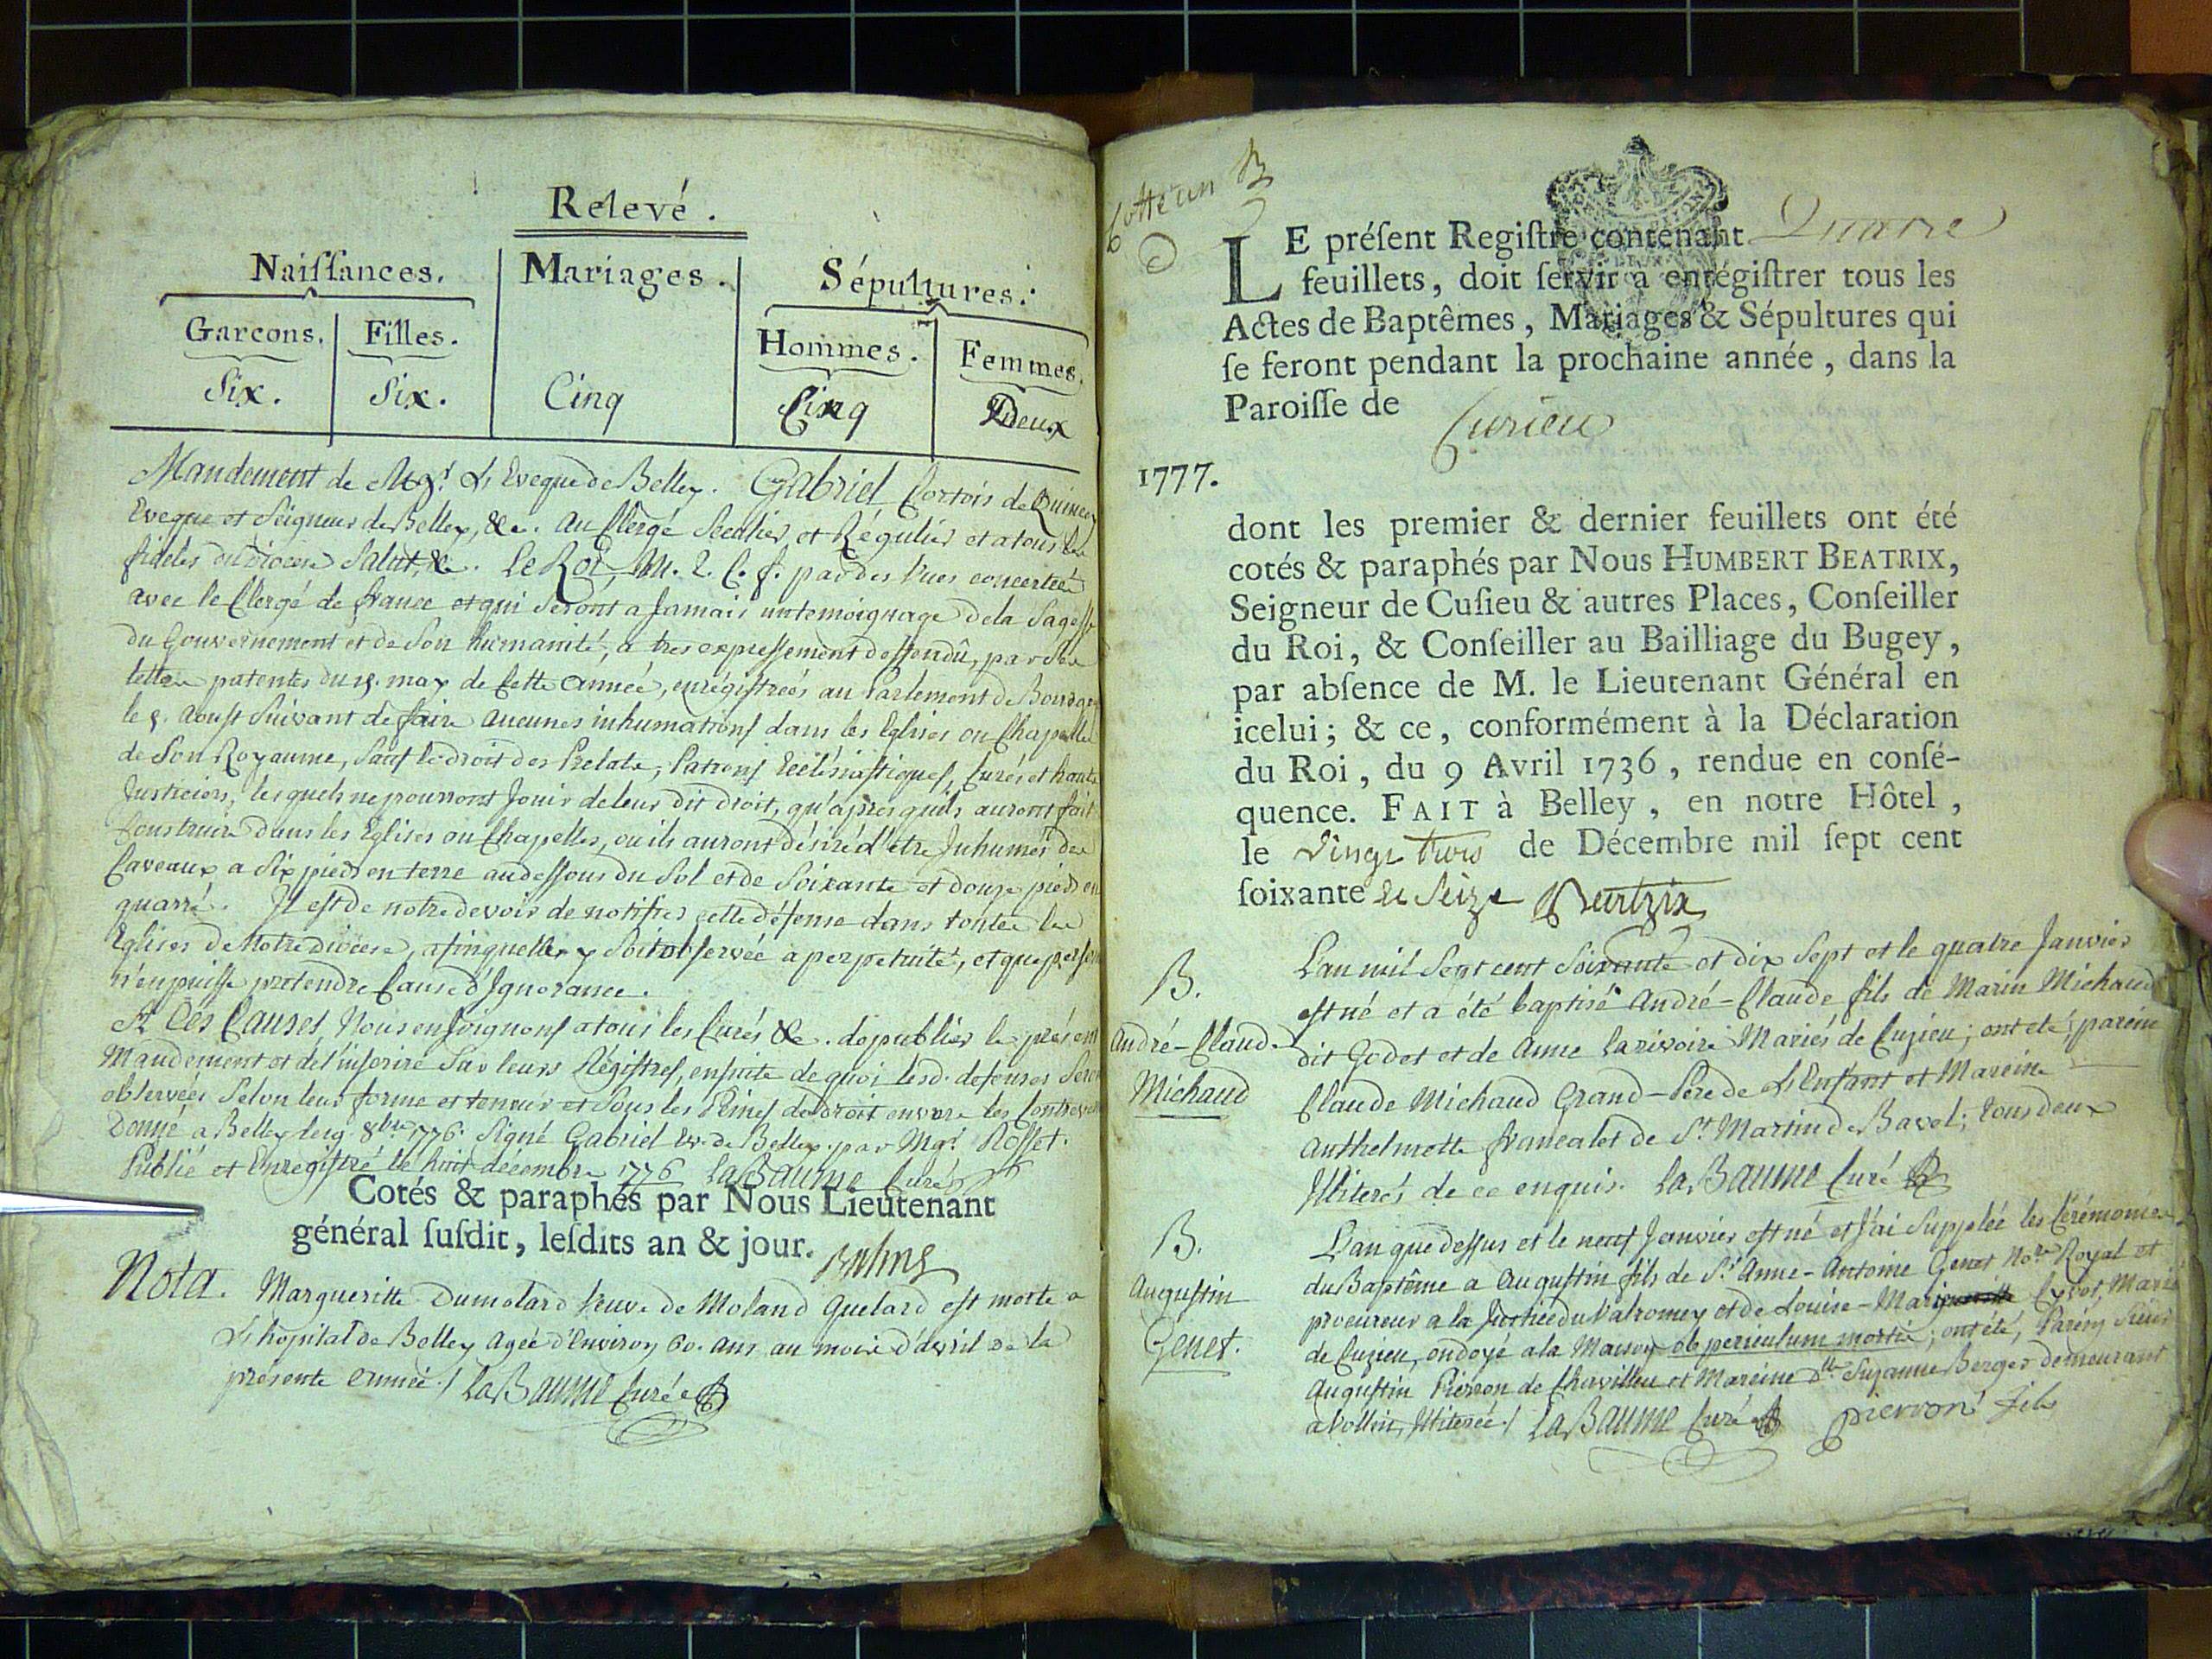 Relevé.
Naissances. Mariages. Sépultures.
Garcons. Filles. Hommes. Femmes.
Six. Six. Cinq Cinq Deux
Mandement de Mgr. L'Eveque de Belley. Gabriel Cortois de Quincey
Eveque et Seigneur de Belley, &c. au Clergé Seculier et Régulier et a tous les
fideles du Diocese Salut, &c. Le Roi, M. T. C. f. par des vues concerteés
avec le Clergé de france et qui Seront a Jamais un temoignage de la Sagesse
du Gouvernement et de Son humanité, a tres expressement deffendû, par Ses
lettres patentes du 15. may de Cette Année, enrégistreés au Parlement de Bourgogne
le 5. Aoust Suivant de faire aucunes inhumations dans les Eglises ou Chapelles
de Son Royaume, Sauf le droit des Prelats, Patrons Ecclésiastiques, Curés et hauts
Justiciers, lesquels ne pourront Jouir de leur dit droit, qu'après quils auront fait
Construire dans les Eglises ou Chapelles, ou ils auront désiré d'être Inhumés des
Caveaux a Six pieds en terre au dessous du Sol et de Soixante et douze pieds en
quarré. Il est de notre devoir de notifier cette défense dans toutes les
Eglises de Notre diocese, afin quelle y Soit observée a perpetuité, et que personne
n'en puisse pretendre Cause d'Ignorance.
A Ces Causes, Nous enjoignons a tous les Curés &c. de publier le présent
Mandement et de l'inscrire Sur leurs Régistres, ensuite de quoi lesd. defenses Seront
observées Selon leur forme et teneur et Sous les Peines de droit envers les Contrevenans
Donné a Belley le 19. 8bre 1776. Signé Gabriel Ev. de Belley. par Mgr. Rosset.
Publié et Enregistré le huit décembre 1776 LaBaume Curé
Cotés & paraphés par Nous Lieutenant
général ſuſdit, leſdits an & jour.
Nota. Margueritte Dumolard veuve de Moland Quelard est morte a
L'hopital de Belley agée d'Environ 60. ans au mois d'avril de la
présente Année./ LaBaume Curé
Cotté un B
LE préſent Regiſtre contenant Quatre
feuillets, doit ſervir à enrégiſtrer tous les
Actes de Baptêmes, Mariages & Sépultures qui
ſe feront pendant la prochaine année, dans la
Paroiſſe de Cuzieu
1777.
dont les premier & dernier feuillets ont été
cotés & paraphés par Nous HUMBERT BEATRIX,
Seigneur de Cuſieu & autres Places, Conſeiller
du Roi, & Conſeiller au Bailliage du Bugey,
par abſence de M. le Lieutenant Général en
icelui; & ce, conformément à la Déclaration
du Roi, du 9 Avril 1736, rendue en conſé-
quence. FAIT à Belley, en notre Hôtel,
le vingt trois de Décembre mil ſept cent
ſoixante et Seize Beatrix
B.
André-Claude
Michaud
L'an mil Sept cent Soixante et dix Sept et le quatre Janvier
est né et a été baptisé André-Claude fils de Marin Michaud
dit Godet et de Anne Larivoire Mariés de Cuzieu; ont eté, parein
Claude Michaud Grand-Pere de L'Enfant et Mareine
Anthelmette francalet de St. Martin de Bavel; tous deux
Illiterés de ce enquis. LaBaume Curé
B.
Augustin
Genet.
L'an que dessus et le neuf Janvier est né et J'ai Suppleé les Cérémonies
du Baptême a Augustin fils de Sr. Anne-Antoine Genet Nore. Royal et
procureur a la Justice du Valromey et de Louise-Margueritte Cyvot, Mariés
de Cuzieu, ondoyé a la Maison ob periculum mortis; ont été, Parein Sieur
Augustin Pierron de Chavilleu et Mareine Dlle. Suzanne Berger demeurant
a Vollin, Illiterée./ LaBaume Curé pierron fils